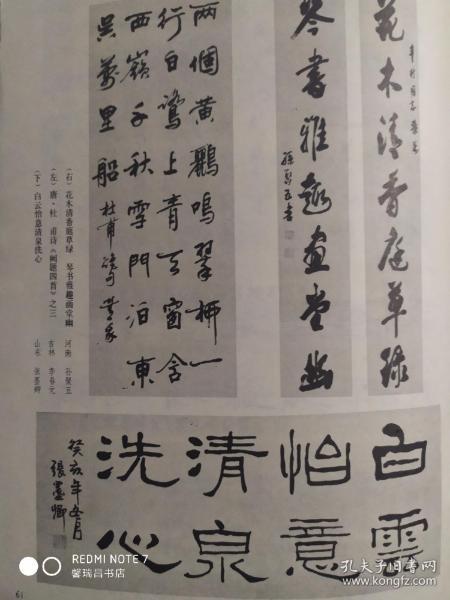 花木清香庭草绿
琴書雅趣画堂幽
孫聚五書
两個黄鸝鳴翠柳一
行白鷺上青天窗含
西嶺千秋雪門泊東
吴萬里船
杜甫
白雲
怡意
清泉
洗心
癸亥年
張墨卿
(右)花木清香庭草绿 琴书雅趣画堂幽 河南 孙聚五
(左)唐·杜甫诗《绝题四首》之三 吉林 李春元
(下)白云怡意清泉洗心 山东 张墨卿
61
REDMI NOTE 7
馨瑞昌书店
孔夫子旧书网
www.kongfz.com